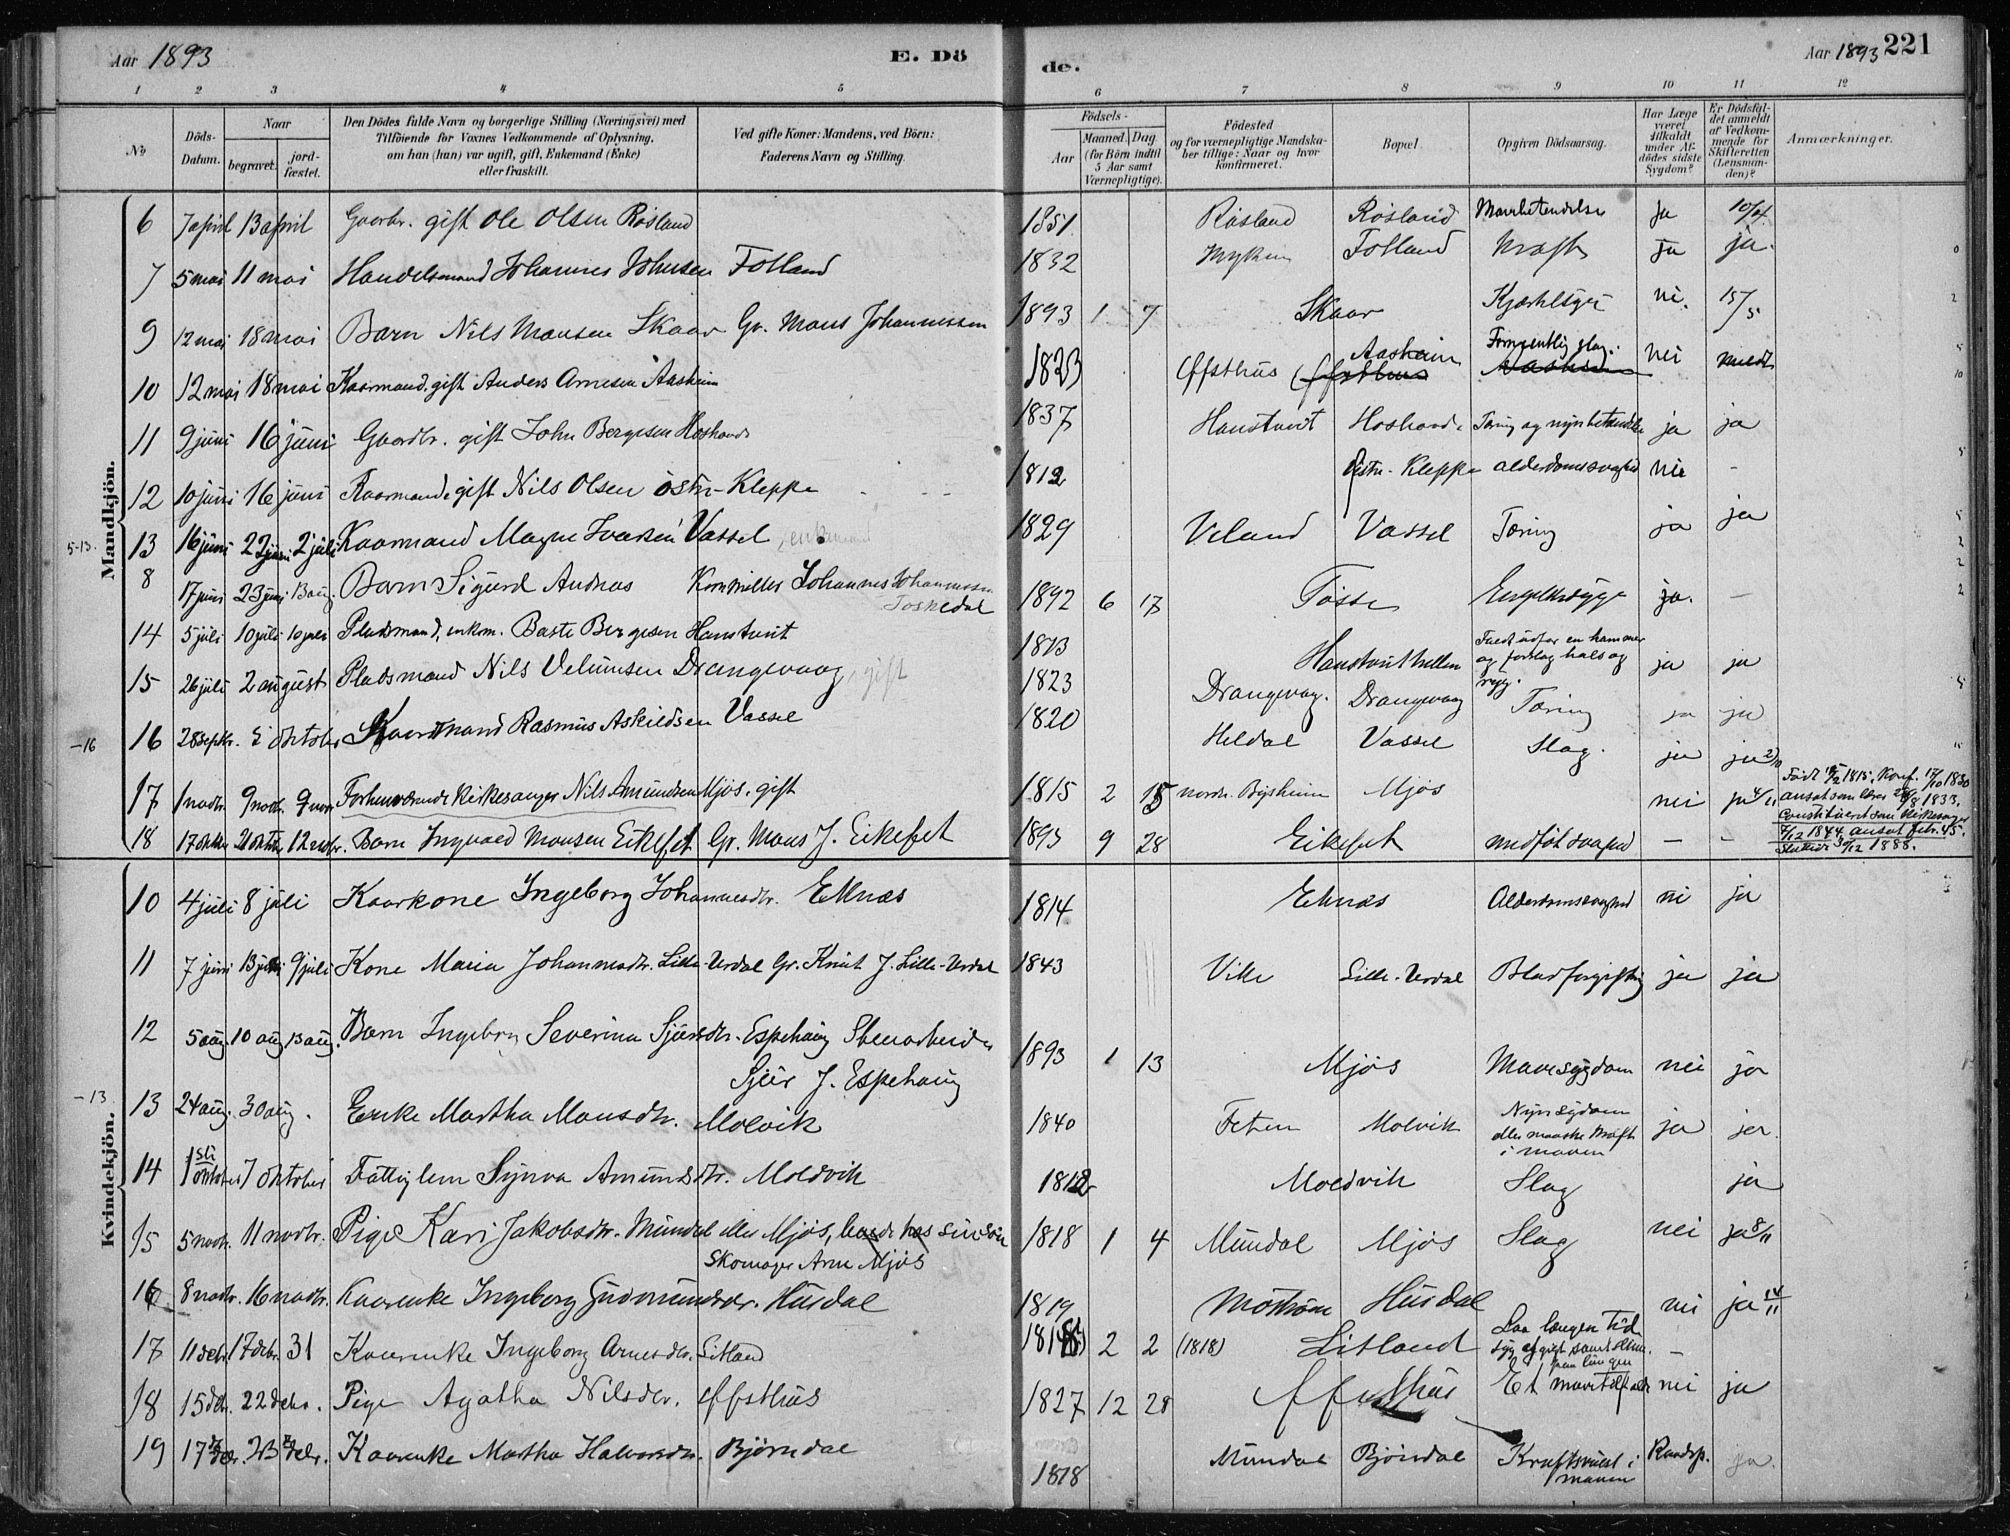 Aar 1893 E. Döde. Aar 1893 221
1 2 3 4 5 6 7 8 9 10 11 12
No Döds-Datum. Naar begravet. jord-fæstet. Den Dödes fulde Navn og borgerlige Stilling (Næringsvei) med Tilföiende for Voxnes Vedkommende af Oplysning, om han (hun) var ugift, gift, Enkemand (Enke) eller fraskilt. Ved gifte Koner: Mandens, ved Börn: Faderens Navn og Stilling. Födsels- Aar Maaned. Dag. (for Börn indtil 5 Aar samt Værnepligtige). Födested og for værnepligtige Mandskaber tillige: Naar og hvor konfirmeret. Bopæl. Opgiven Dödsaarsag. Har Læge været tilkaldt under Afdödes sidste Sygdom? Er Dödsfaldet anmeldt af Vedkommende for Skifteretten (Lensmanden)? Anmærkninger.
Mandkjön.
6 7 april 13 april Gaardbr. gift Ole Olsen Røsland 1851 Røsland Røsland Mavebetendelse ja 10/4
7 5 mai 11 mai Handelsmand Johannes Johnsen Folland 1832 Myking Folland Kræft ja ja.
9 12 mai 18 mai Barn Nils Monsen Skaar Gr. Mons Johannessen 1893 1 7 Skaar nei. 15/5
10 12 mai 18 mai Kaarmand, gift Anders Arnesen Aasheim 1823 Offsthus Aasheim slag. nei meldt
11 9 juni 16 juni Gaardbr. gift John Bergesen Hoshovde 1837 Hanstveit Hoshovde Tæring og nyrebetendelse ja ja
12 10 juni 16 juni Kaarmand gift Nils Olsen østre-Kleppe 1812 østre-Kleppe alderdomssvaghed nei -
5-13. 13 16 juni 22 juni 2 juli Kaarmand Magne Ivarsen Vassel 1829 Veland Vassel Tæring ja ja
8 17 juni 23 juni 13 aug. Barn Sigurd Andreas Johannes Johannessen Toskedal 1892 6 17 Tøsse ja. -
14 5 juli 10 juli 10 juli Pladsmand, enkem. Baste Bergesen Hanstveit 1813 Hanstveithellen Faldt udfor en hammer og forslog hals og ryg. ja ja
15 26 juli 2 august Pladsmand Nils Velumsen Drangevaag, gift 1823 Drangevaag. Drangevaag Tæring ja ja
-16 16 28 septbr. 5 oktober Kaarmand Rasmus Askildsen Vassel 1820 Heldal Vassel Slag. ja ja
17 1 novbr. 9 novbr. 9 novbr. Forhenværende Kirkesanger Nils Amundsen Mjøs. gift 1815 2 15 nordre Bysheim Mjøs nei ja 4/11 Født 15/2 1815. Konf. 17/10 1830 ansat som lærer 1833. Constitueret som Kirkesanger 1844 ansat febr. 45. 1888.
18 17 oktbr 21 oktbr 12 novbr. Barn Ingvald Monsen Eikefet Gr. Mons J. Eikefet 1893 9 28 Eikefet medfødt svaghed - -
Kvindekjön.
10 4 juli 8 juli Kaarkone Ingeborg Johannesdtr. Eknæs 1814 Eknæs Alderdomssvaghed nei ja
11 7 juni 13 juni 9 juli Kone Maria Johannesdtr. Lille-Urdal Gr. Knut J. Lille-Urdal 1843 Lille-Urdal Blodforgiftning ja ja
12 5 aug. 10 aug. 13 aug. Barn Ingeborg Severina Sjursdtr. Espehaug Stenarbeider Sjur J. Espehaug 1893 1 13 Mjøs Mavesygdom nei ja
-13. 13 24 aug. 30 aug. Enke Martha Monsdtr. Molvik 1840 Molvik Nyresygdom eller maaske kræft i maven ja ja.
14 1ste oktober 7 oktober Fattiglem Synva Amundsdtr. Moldvik 1812 Moldvik Slag ja
15 5 novbr. 11 novbr. Pige Kari Jakobsdtr. Mundal eller Mjøs, boede hos sin søn Skomager Arne Mjøs 1818 1 4 Mundal Mjøs Slag nei ja 8/11
16 8 novbr. 16 novbr. Kaarenke Ingeborg Gudmundsdtr. Husdal 1819 Husdal nei ja 14/11
17 11 debr. 17 debr. 31 Kaarenke Ingeborg Arnesdtr. Litland 1818 2 2 (1818) Litland Laa længere tid syg af gigt samt -
18 15 debr. 22 debr. Pige Agatha Nilsdtr. Offsthus 1827 12 28 Offsthus Et mavetilfælde nei ja
19 17 debr. 23 debr. Kaarenke Martha Halvorsdtr. Bjørndal 1818 Mundal Bjørndal i maven ja.